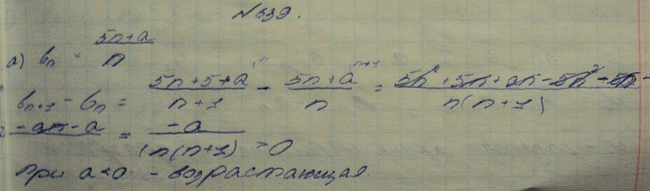 №539.
а) bn = (5n+a)/n
bn+1 - bn = (5n+5+a)/(n+1) - (5n+a)/n = (5n²+5n+an-5n²-5n-
-an-a)/ = -a/(n(n+1)) >0
при a<0 - возрастающая